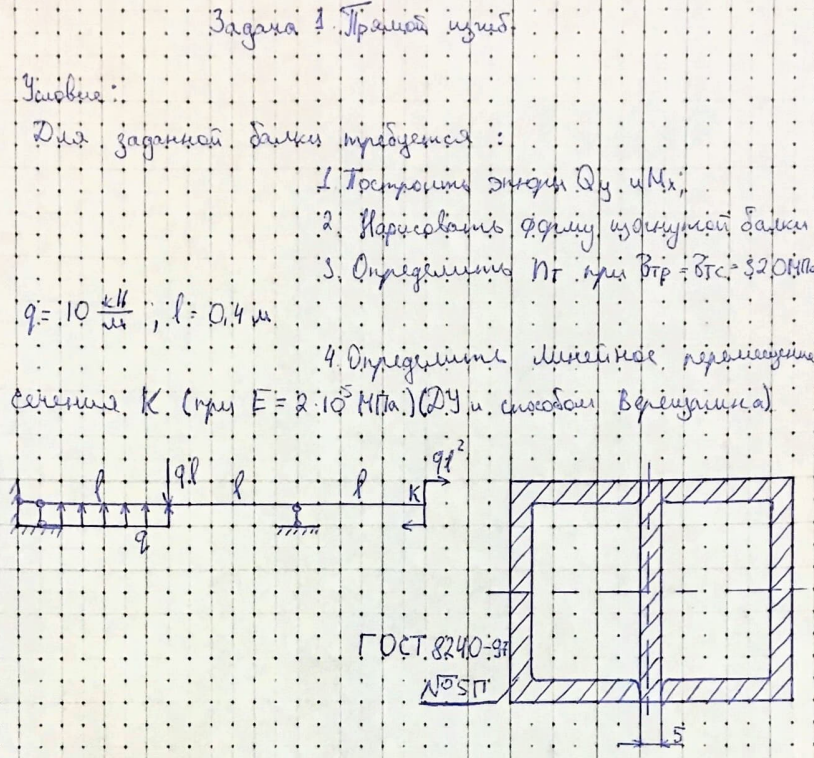 Задача 1. Прямой изгиб
Условие:
Для заданной балки требуется :
1. Построить эпюры Qy и Mx;
2. Нарисовать форму изогнутой балки
3. Определить nт при σтр = σтс = 320 МПа
q = 10 кН/м ; l = 0,4 м
4. Определить линейное перемещение
сечения K. (при E = 2·10⁵ МПа.) (ДУ и способом Верещагина)
ql²
l ql l l K
q
ГОСТ 8240-97
№5П
5